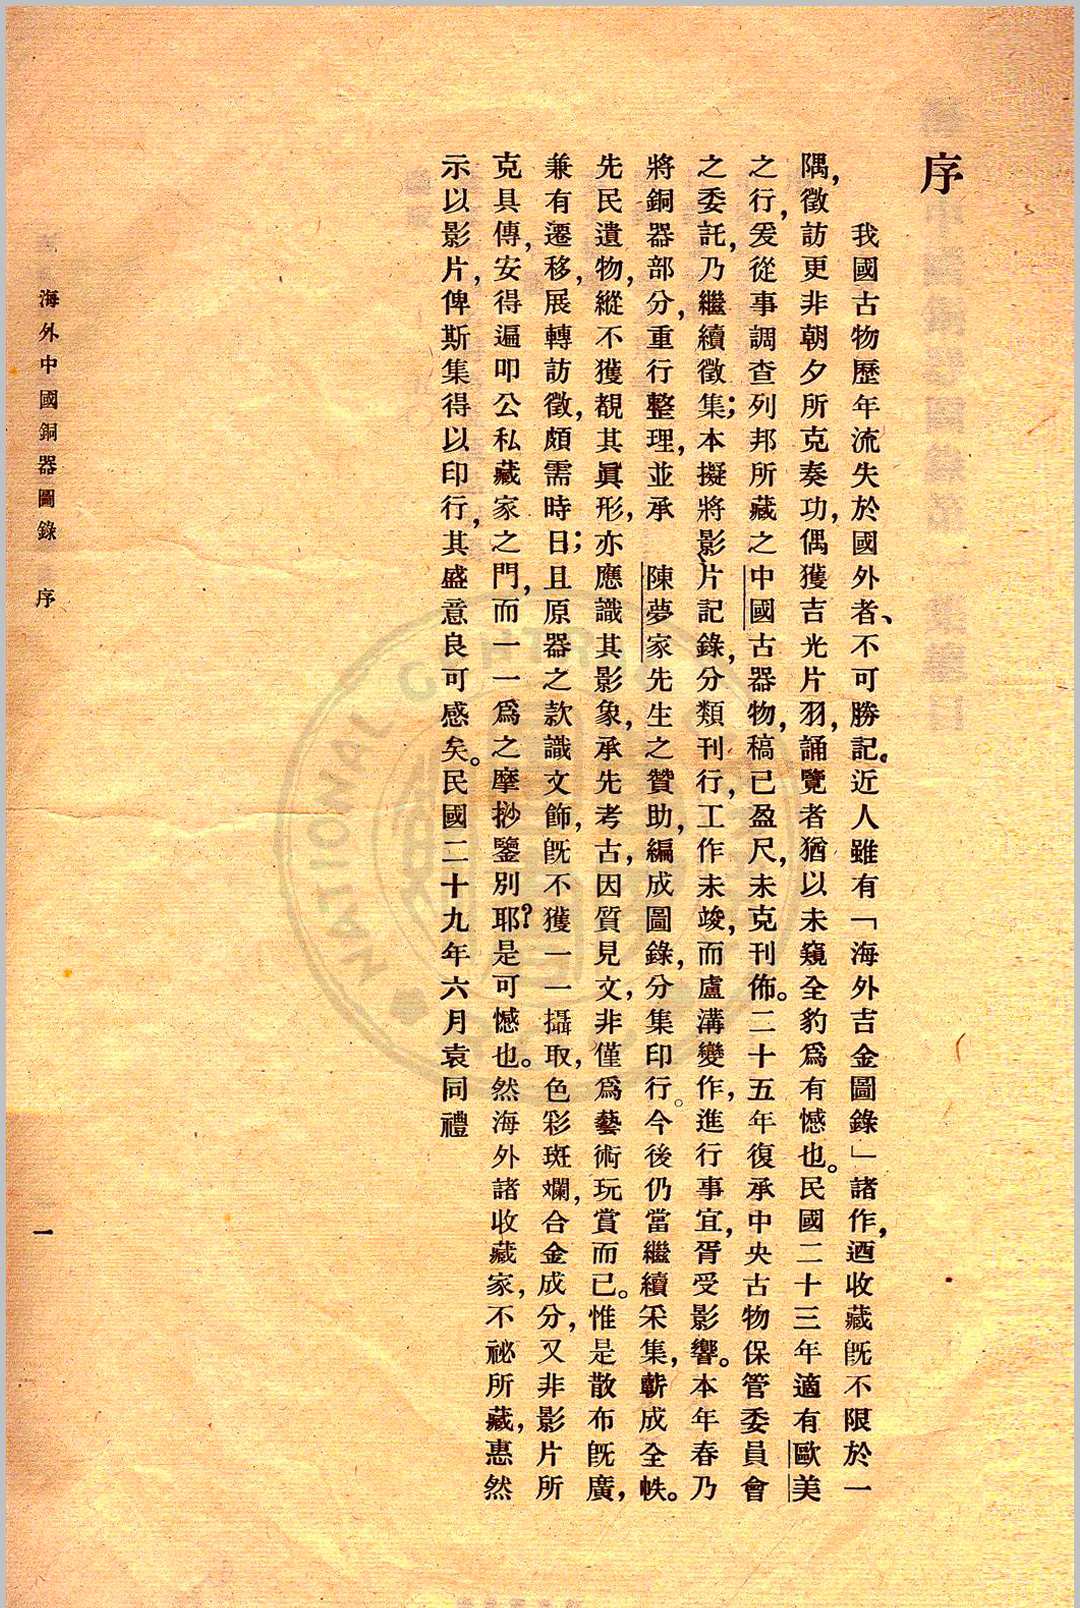 序
我國古物歷年流失於國外者、不可勝記。近人雖有「海外吉金圖錄」諸作，迺收藏旣不限於一
隅，徵訪更非朝夕所克奏功，偶獲吉光片羽，誦覽者猶以未窺全豹爲有憾也。民國二十三年適有歐美
之行，爰從事調查列邦所藏之中國古器物，稿已盈尺，未克刊佈。二十五年復承中央古物保管委員會
之委託，乃繼續徵集；本擬將影片記錄，分類刊行，工作未竣，而盧溝變作，進行事宜，胥受影響。本年春乃
將銅器部分，重行整理，並承　陳夢家先生之贊助，編成圖錄，分集印行。今後仍當繼續采集，蘄成全帙。
先民遺物，縱不獲覩其眞形，亦應識其影象，承先考古，因質見文，非僅爲藝術玩賞而已。惟是散布旣廣，
兼有遷移，展轉訪徵，頗需時日；且原器之款識文飾，旣不獲一一攝取，色彩斑斕，合金成分，又非影片所
克具傳，安得遍叩公私藏家之門，而一一爲之摩挱鑒別耶？是可憾也。然海外諸收藏家，不祕所藏，惠然
示以影片，俾斯集得以印行，其盛意良可感矣。民國二十九年六月袁同禮
海外中國銅器圖錄　序
一
NATIONAL CENTRAL